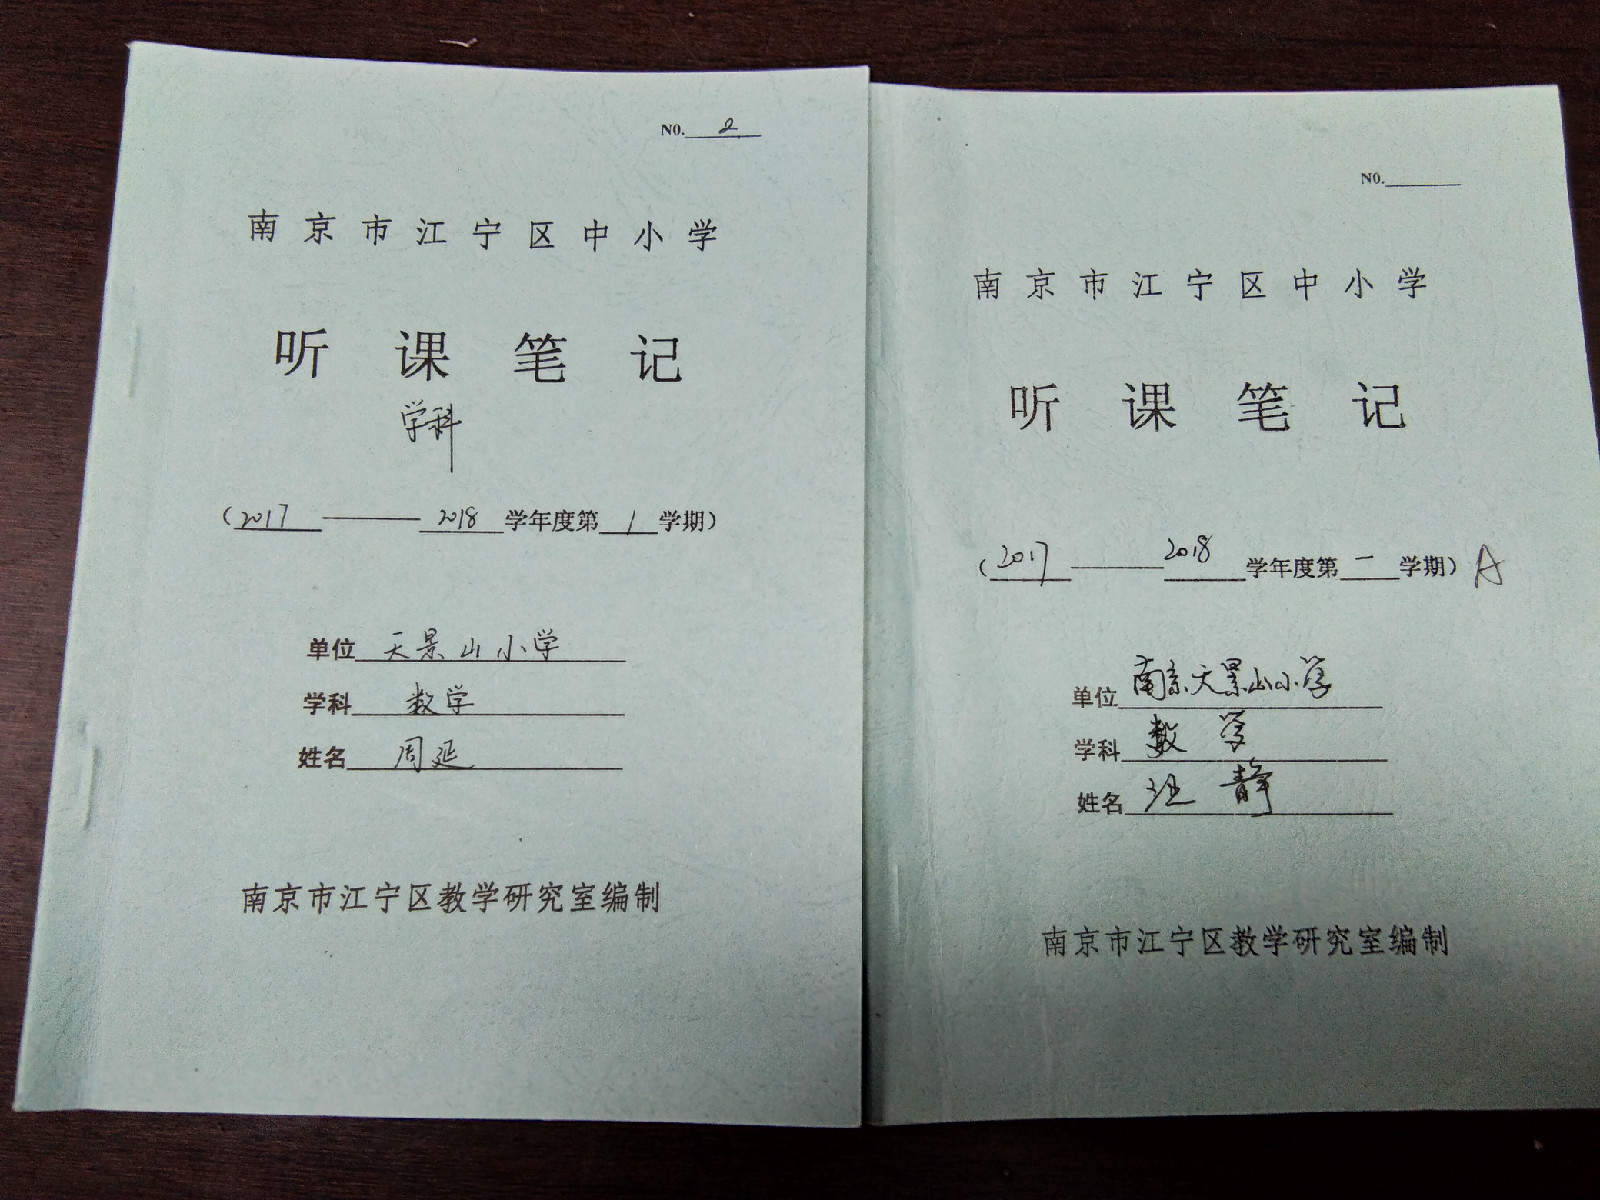 NO. 2
南京市江宁区中小学
听课笔记
学科
(2017——2018学年度第1学期)
单位 天景山小学
学科 数学
姓名 周延
南京市江宁区教学研究室编制
NO.
南京市江宁区中小学
听课笔记
(2017——2018学年度第一学期) A
单位 南京天景山小学
学科 数学
姓名 汪静
南京市江宁区教学研究室编制